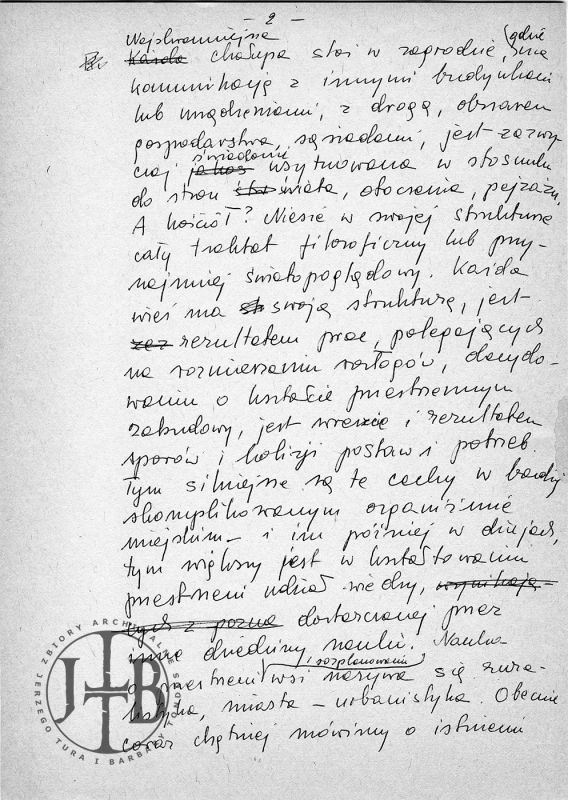 - 2 -
Najskromniejsza
Każda chałupa stoi w zagrodzie, gdzie ma
komunikację z innymi budynkami
lub urządzeniami, z drogą, obszarem
gospodarstwa, sąsiadami, jest zazwy-
czaj jakoś świadomie usytuowana w stosunku
do stron świata, otoczenia, pejzażu.
A kościół? Niesie w swojej strukturze
cały traktat filozoficzny lub przy-
najmniej światopoglądowy. Każda
wieś ma swoją strukturę, jest
rezultatem prac, polegających
na rozmierzaniu rozłogów, decydo-
waniu o kształcie przestrzennym
zabudowy, jest wreszcie i rezultatem
sporów i kolizji postaw i potrzeb.
Tym silniejsze są te cechy w bardziej
skomplikowanym organizmie
miejskim - i im później w dziejach,
tym większy jest w kształtowaniu
przestrzeni udział wiedzy, wynikają-
cych z pozna dostarczonej przez
inne dziedziny nauki. Nauka
o przestrzeni i rozplanowaniu wsi nazywa się rura-
listyka, miasta - urbanistyka. Obecnie
coraz chętniej mówimy o istnieniu
ZBIORY ARCHIWALNE
JERZEGO TURA I BARBARY TONDOS
JTB